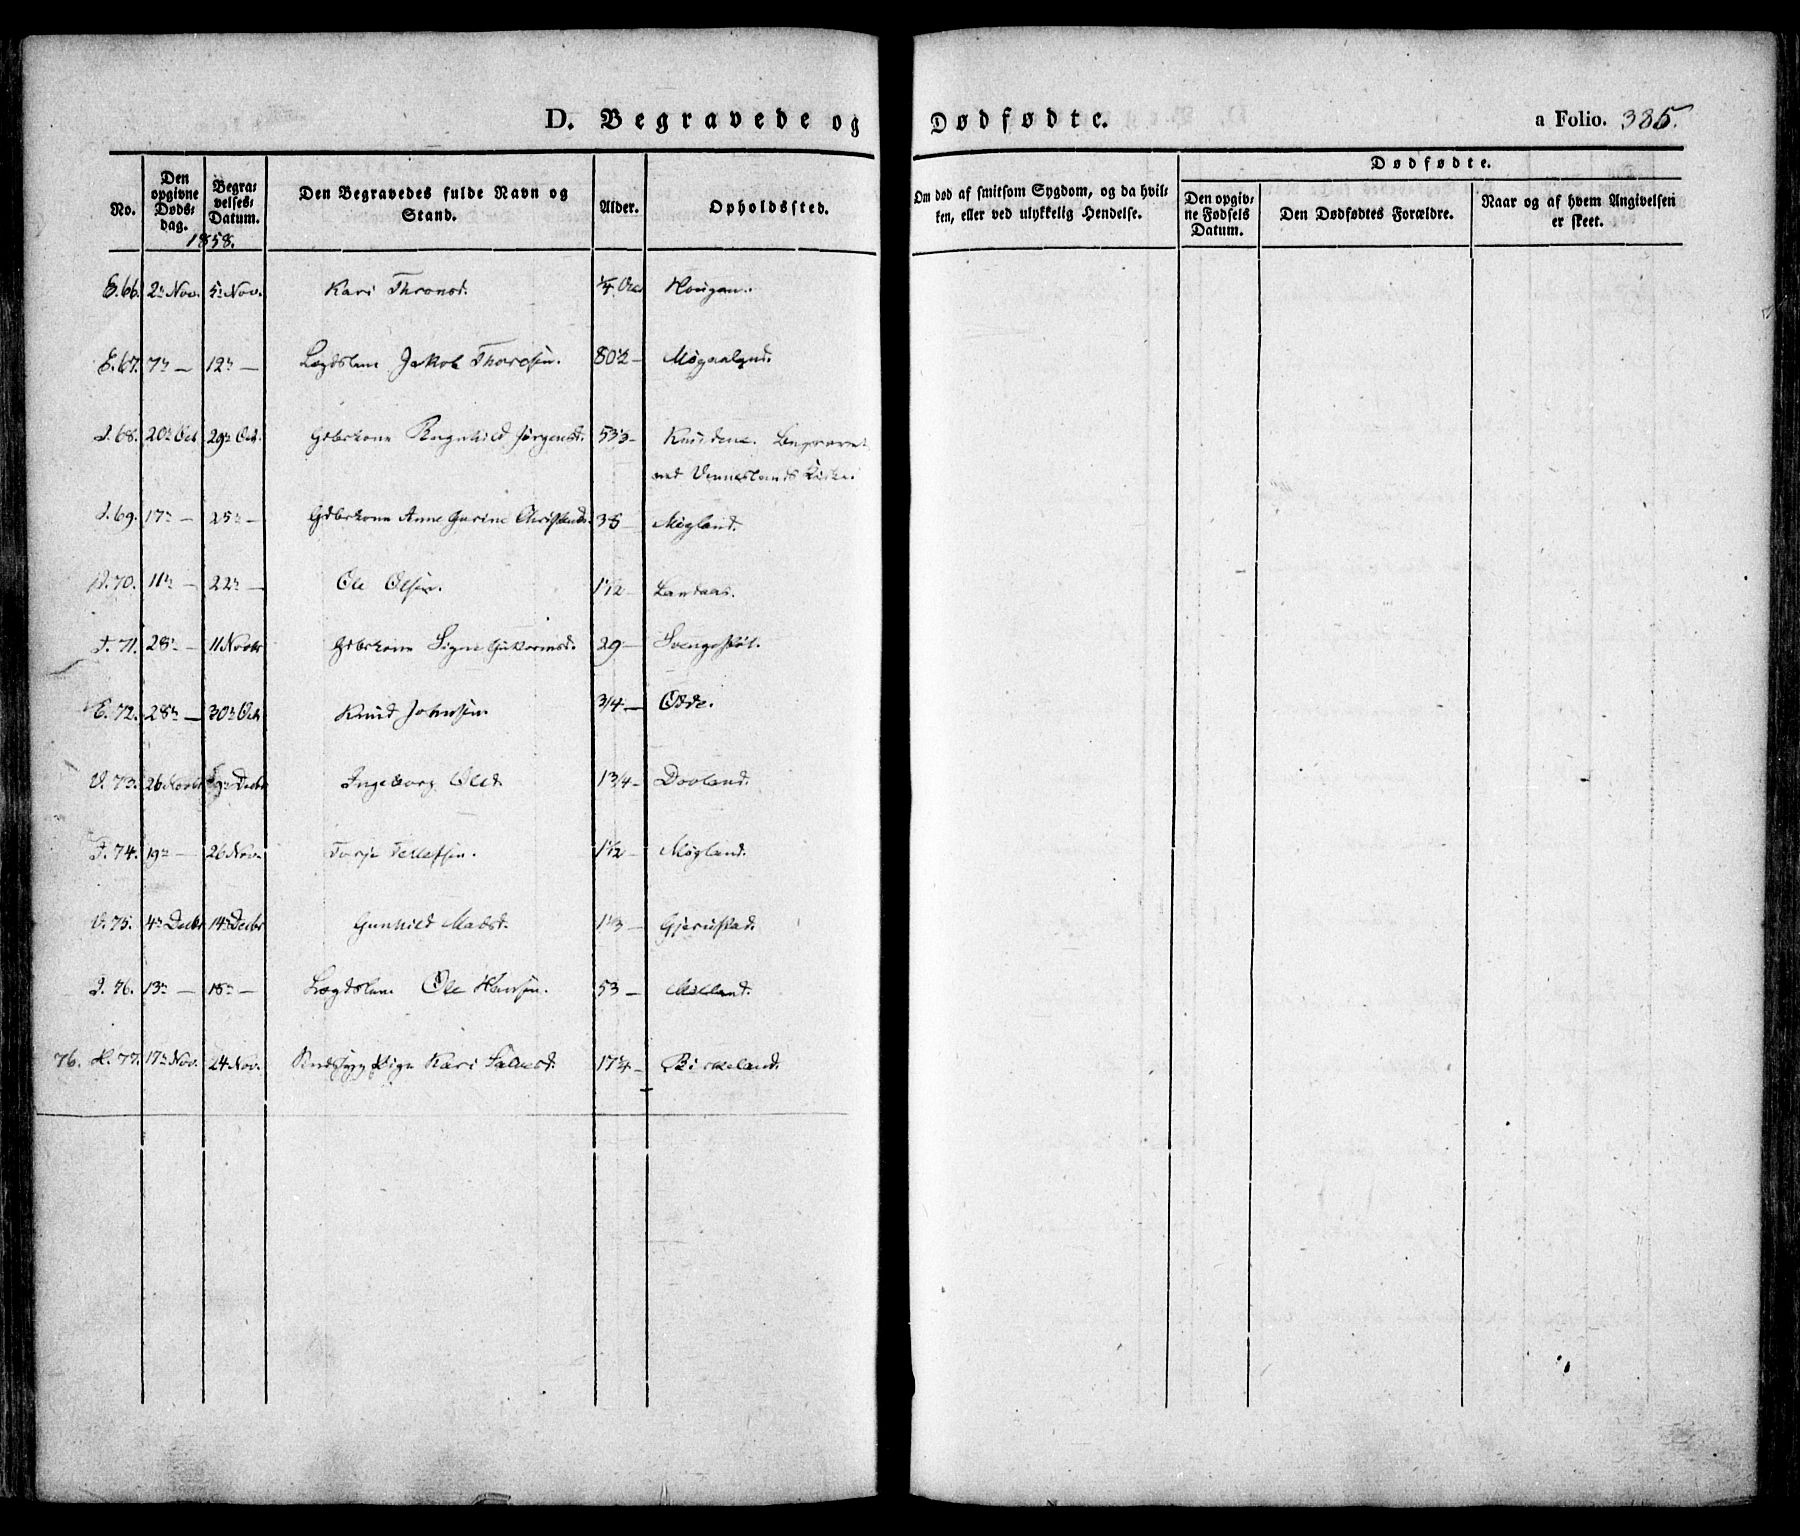 D. Begravede og Dødfødte. a Folio. 385.
No. Den opgivne Døds-dag. Begra-velses-Datum. Den Begravedes fulde Navn og Stand. Alder. Opholdssted. Om død af smitsom Sygdom, og da hvil-ken, eller ved ulykkelig Hendelse. Dødfødte. Den opgiv-ne Fødsels Datum. Den Dødfødtes Forældre. Naar og af hvem Angivelsen er skeet.
1858.
E. 66. 2n Nov. 5n Nov. Kari Thronsd. 1/4 Hougan.
E. 67. 7n — 12n — Lægdslem Jakob Thoresen. 80 1/2 —
68. 20n Oct 29n Oct. Gbrkone Ragnhild Jørgensd. 53 1/3 — Knudene. Begravet
ved Venneslands Kirke.
69. 17n — 25n — Gbrkone Anne Gurine 38 — Møgland.
70. 11n — 22n — Ole Olsen. 1 1/2 — Landaas.
71. 28n — 11 Novbr Gbrkone Signe Guttormsd. 29 —
E. 72. 28n — 30n Oct Knud Johnsen. 3/4 — Odde.
V. 73. 26 Novbr 9n Decbr Ingeborg Olsd. 1 3/4 — Dovland.
74. 19n — 26 Nov. Torje Tellefsen. 1 1/2 — Møgland.
V. 75. 4n Decbr 14n Decbr Gunhild Madsd. 1 1/3 — Gjerustad.
76. 13n — 18n — Lægdslem Ole Hansen. 53 —
76. H. 77. 17n Nov. 24 Nov. Pige Kari 17 1/4 — Birkeland.